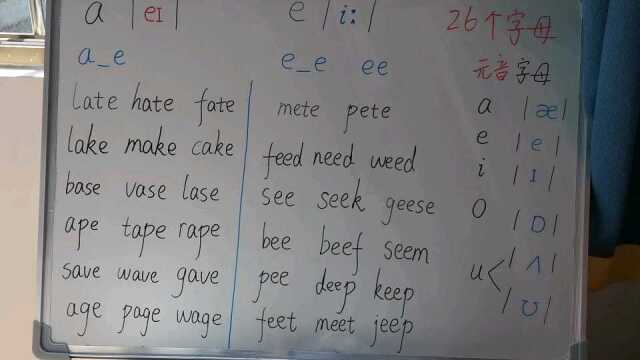 a |eɪ|
a_e
late hate fate
lake make cake
base vase lase
ape tape rape
save wave gave
age page wage
e |i:|
e_e ee
mete pete
feed need weed
see seek geese
bee beef seem
pee deep keep
feet meet jeep
26个字母
元音字母
a |æ|
e |e|
i |ɪ|
o |ɒ|
u< |ʌ|
|ʊ|